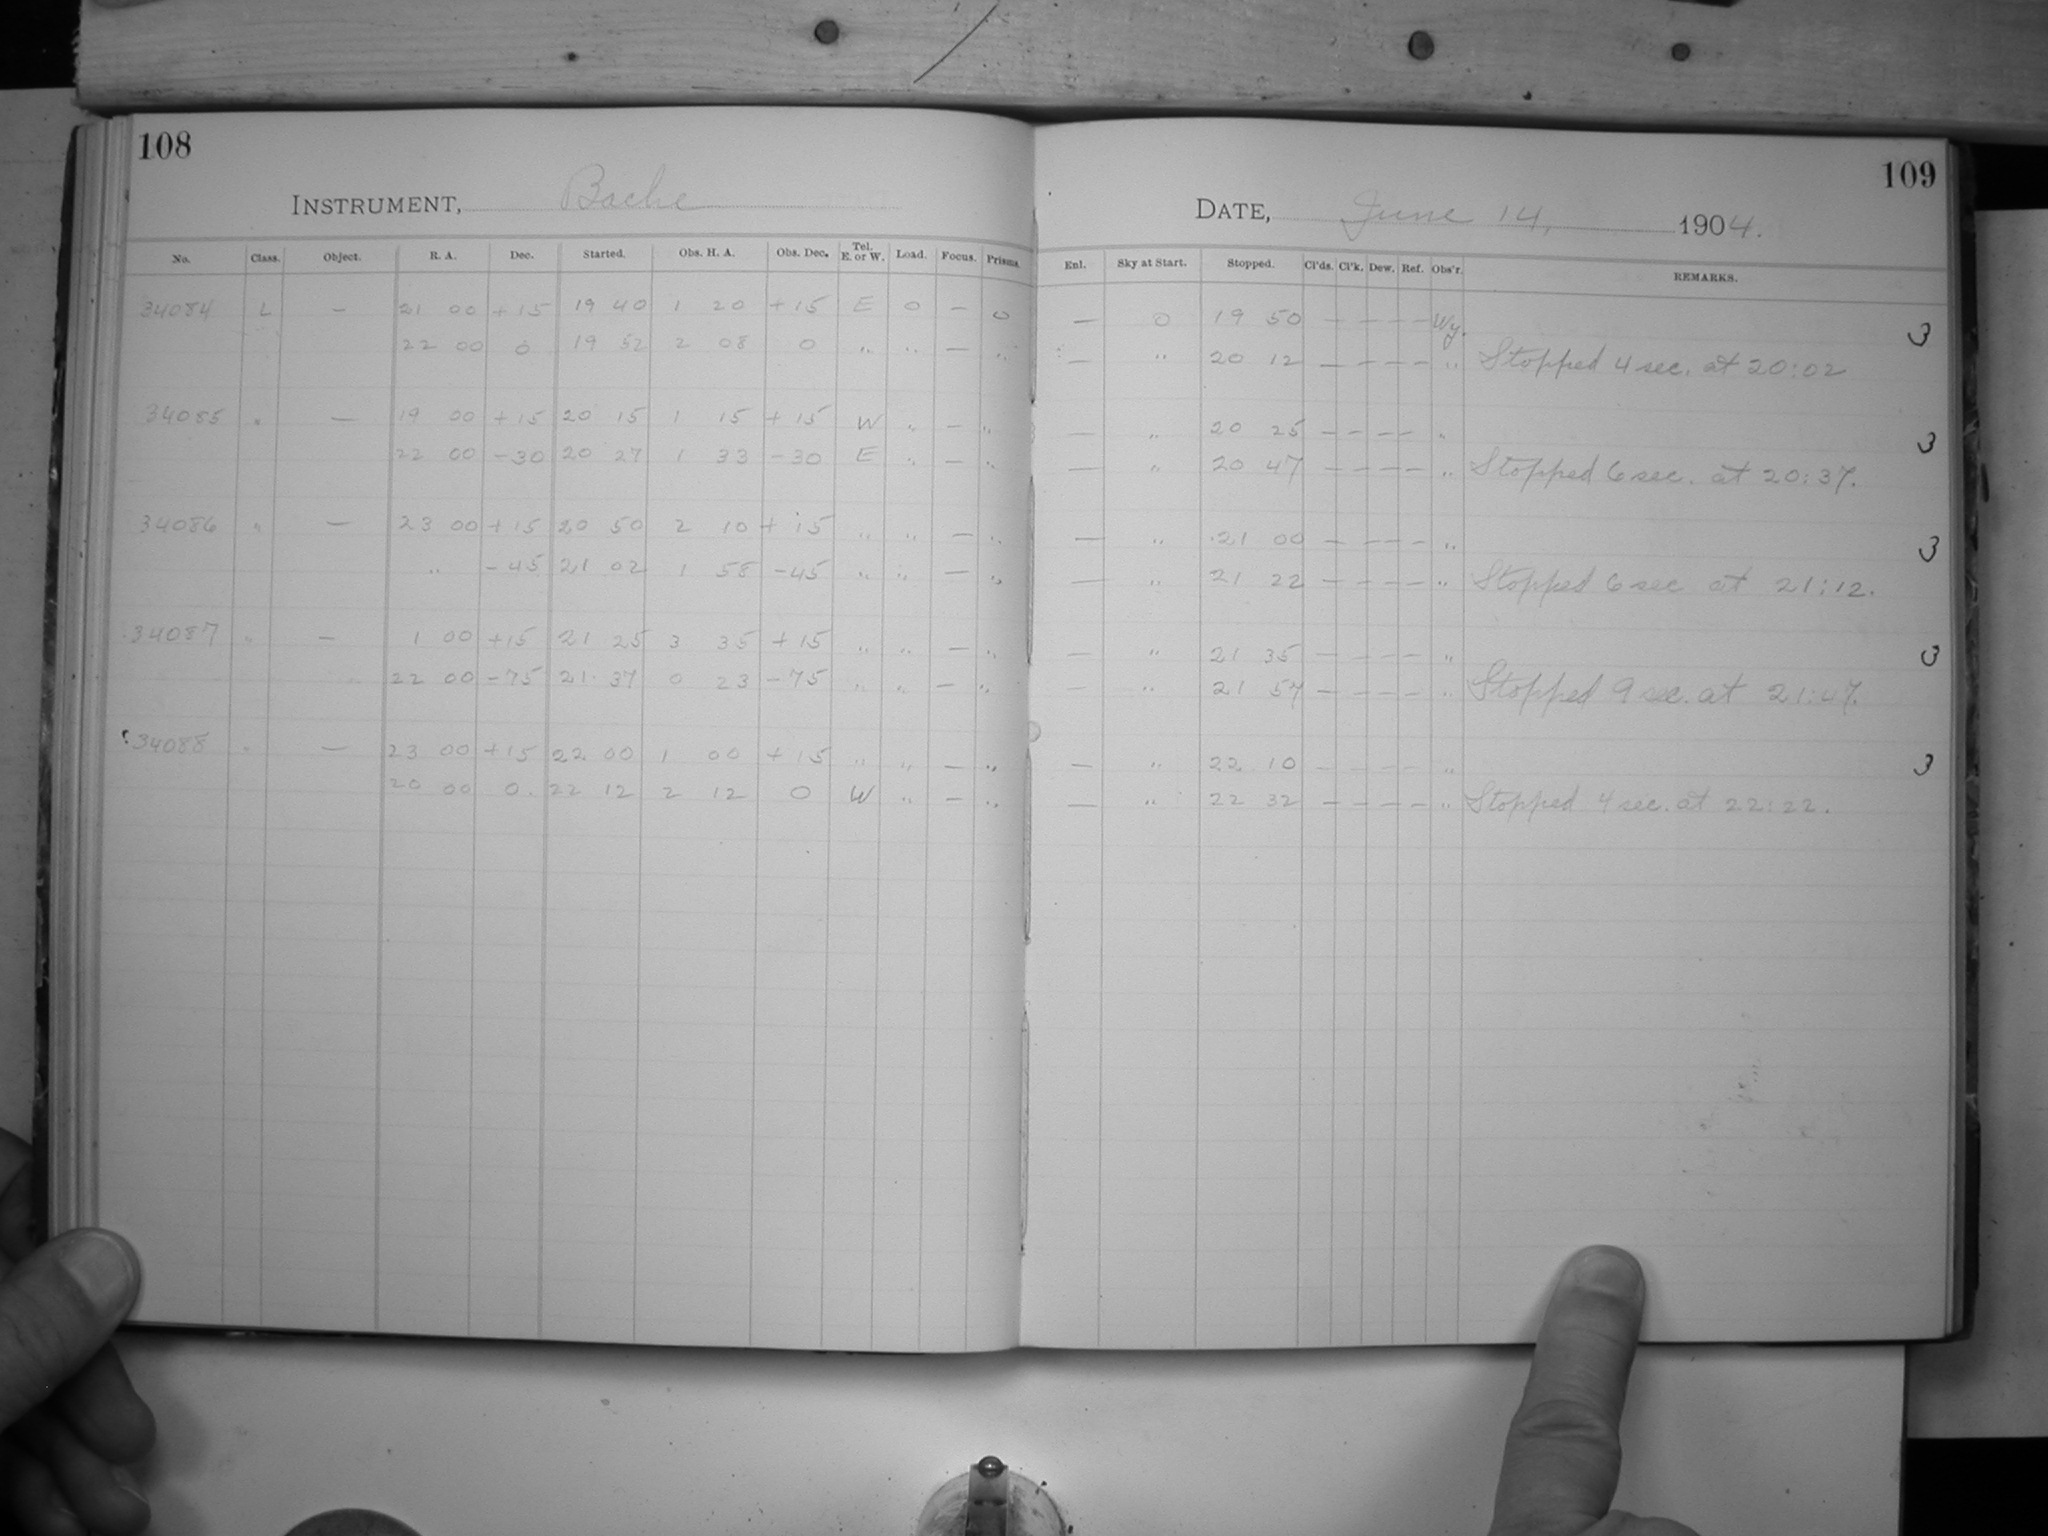 108
INSTRUMENT, Bache
No. Class. Object. R. A. Dec. Started. Obs. H. A. Obs. Dec. Tel. E. or W. Load. Focus. Prisms.
34084 L — 21 00 +15 19 40 1 20 +15 E 0 — 0
22 00 0 19 52 2 08 0 " " — "
34085 " — 19 00 +15 20 15 1 15 +15 W " — "
22 00 -30 20 27 1 33 -30 E " — "
34086 " — 23 00 +15 20 50 2 10 +15 " " — "
" -45 21 02 1 58 -45 " " — "
34087 " — 1 00 +15 21 25 3 35 +15 " " — "
22 00 -75 21 37 0 23 -75 " " — "
34088 " — 23 00 +15 22 00 1 00 +15 " " — "
20 00 0. 22 12 2 12 0 W " — "
109
DATE, June 14, 1904.
Enl. Sky at Start. Stopped. Cl'ds. Cl'k. Dew. Ref. Obs'r. REMARKS.
— 0 19 50 — — — — Wy. 3
— " 20 12 — — — — " Stopped 4 sec. at 20:02
— " 20 25 — — — — " 3
— " 20 47 — — — — " Stopped 6 sec. at 20:37.
— " 21 00 — — — — " 3
— " 21 22 — — — — " Stopped 6 sec at 21:12.
— " 21 35 — — — — " 3
— " 21 57 — — — — " Stopped 9 sec. at 21:47.
— " 22 10 — — — — " 3
— " 22 32 — — — — " Stopped 4 sec. at 22:22.